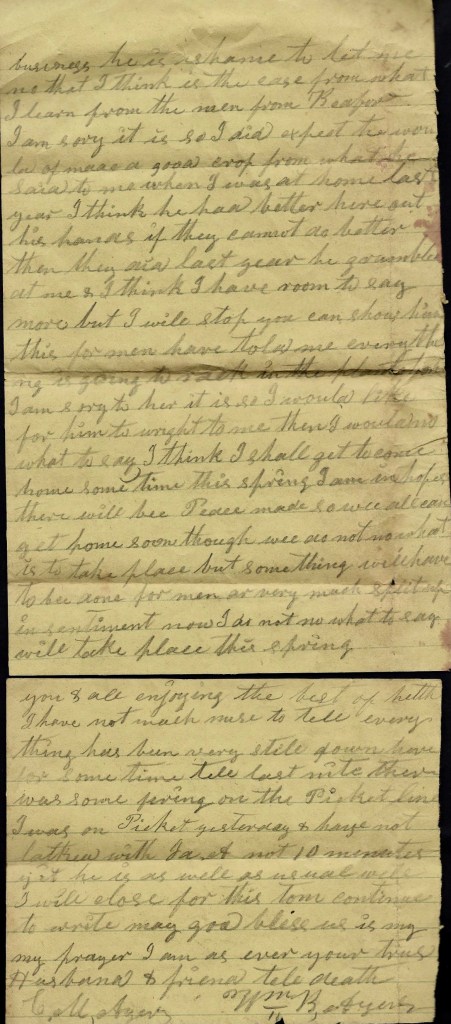 business he is ashame to let me
no that I think is the case from what
I learn from the men from Beafort
I am sory it is so I did expect he wou
ld of made a good crop from what he
said to me when I was at home last
year I think he had better here out
his hands if they cannot do better
then they did last year he grumbles
at me & I think I have room to say
more but I will stop you can show him
this for men have told me every thi
ng is going to rack in the place
I am sory to her it is so I would like
for him to wright to me then I would no
what to say I think I shall get to come
home some time this spring I am in hopes
there will bee Peace made so wee all can
get home soon though wee do not no what
is to take place but something will have
to bee done for men ar very much split up
in sentiment now I do not no what to say
will take place this spring
you & all enjoying the best of helth
I have not much nuse to tell every
thing has bun very still down here
for some time tele last nite there
was some firing on the Picket line
I was on Picket yesterday & have not
talked with Ja. A not 10 minutes
yit he is as well as usual well
I will close for this tom continue
to write may god bless us is my
my prayer I am as ever your true
Husband & friend tele death
C. M. Ayers Wm B. Ayers